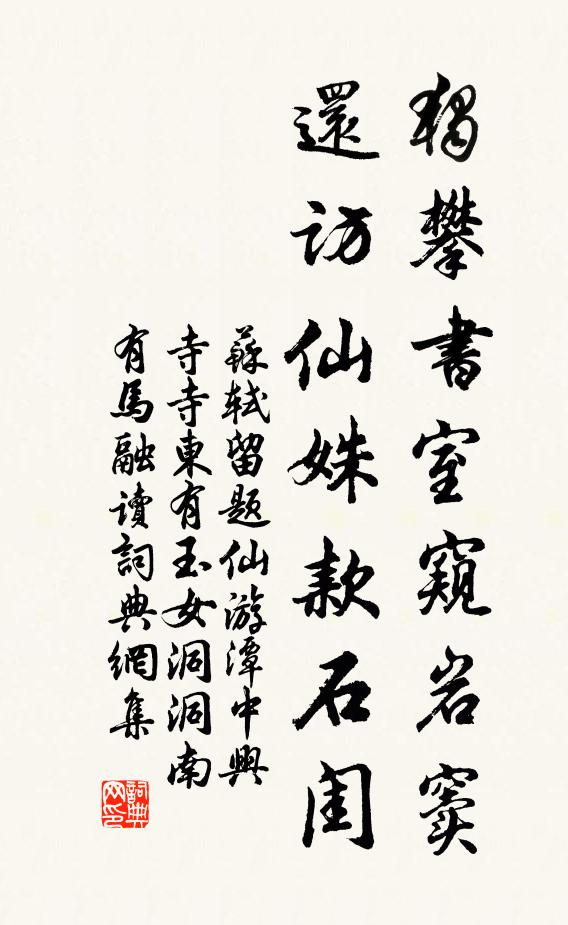 獨攀書室窺岩竇
還訪仙姝款石閨
蘇軾留題仙游潭中興
寺寺東有玉女洞洞南
有馬融讀詞典網集
詞典
网印